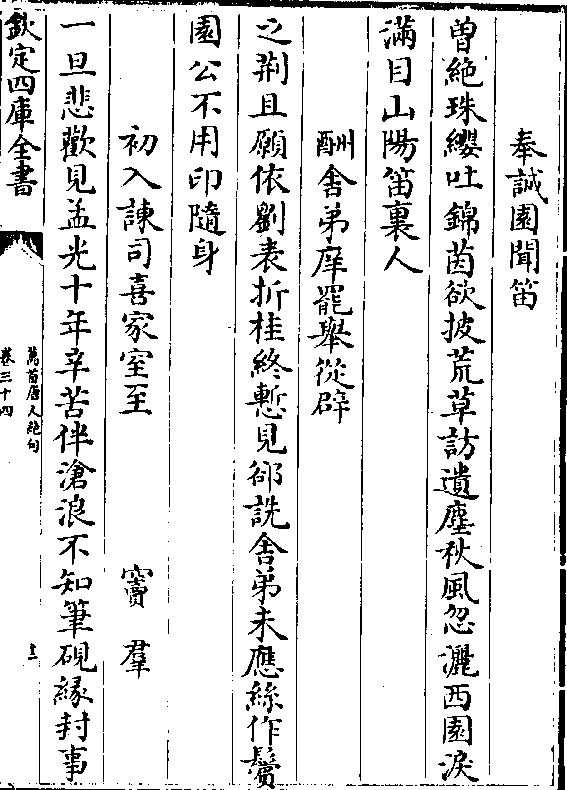 奉誠園聞笛
曽絶珠纓吐錦茵欲披荒草訪遺塵秋風忽灑西園淚
滿目山陽笛裏人
酬舍弟庠罷舉從辟
之荆且願依劉表折桂終慙見郤詵舍弟未應絲作鬢
園公不用印隨身
初入諫司喜家室至
竇羣
一旦悲歡見孟光十年辛苦伴滄浪不知筆硯緣封事
欽定四庫全書
萬首唐人絶句
卷三十四